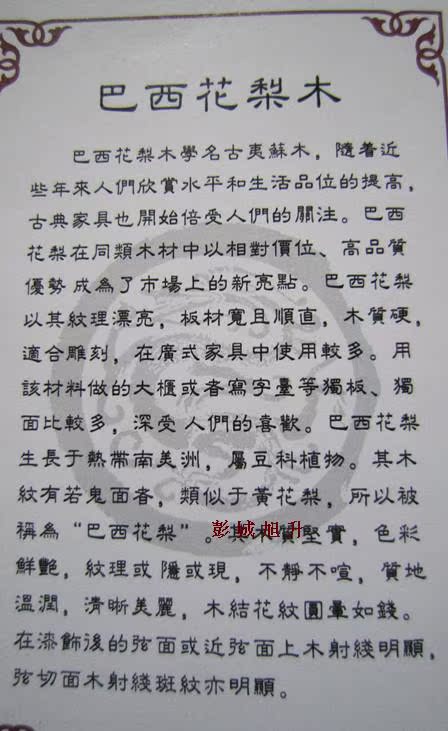 巴西花梨木
巴西花梨木學名古夷蘇木，隨着近
些年來人們欣賞水平和生活品位的提高，
古典家具也開始倍受人們的關注。巴西
花梨在同類木材中以相對價位、高品質
優勢成為了市場上的新亮點。巴西花梨
以其紋理漂亮，板材寬且順直，木質硬，
適合雕刻，在廣式家具中使用較多。用
該材料做的大櫃或者寫字臺等獨板、獨
面比較多，深受人們的喜歡。巴西花梨
生長于熱帶南美洲，屬豆科植物。其木
紋有若鬼面者，類似于黃花梨，所以被
稱為“巴西花梨”。其木質堅實，色彩
彭城旭升
鮮艷，紋理或隱或現，不靜不喧，質地
溫潤，清晰美麗，木結花紋圓暈如錢。
在漆飾後的弦面或近弦面上木射綫明顯，
弦切面木射綫斑紋亦明顯。